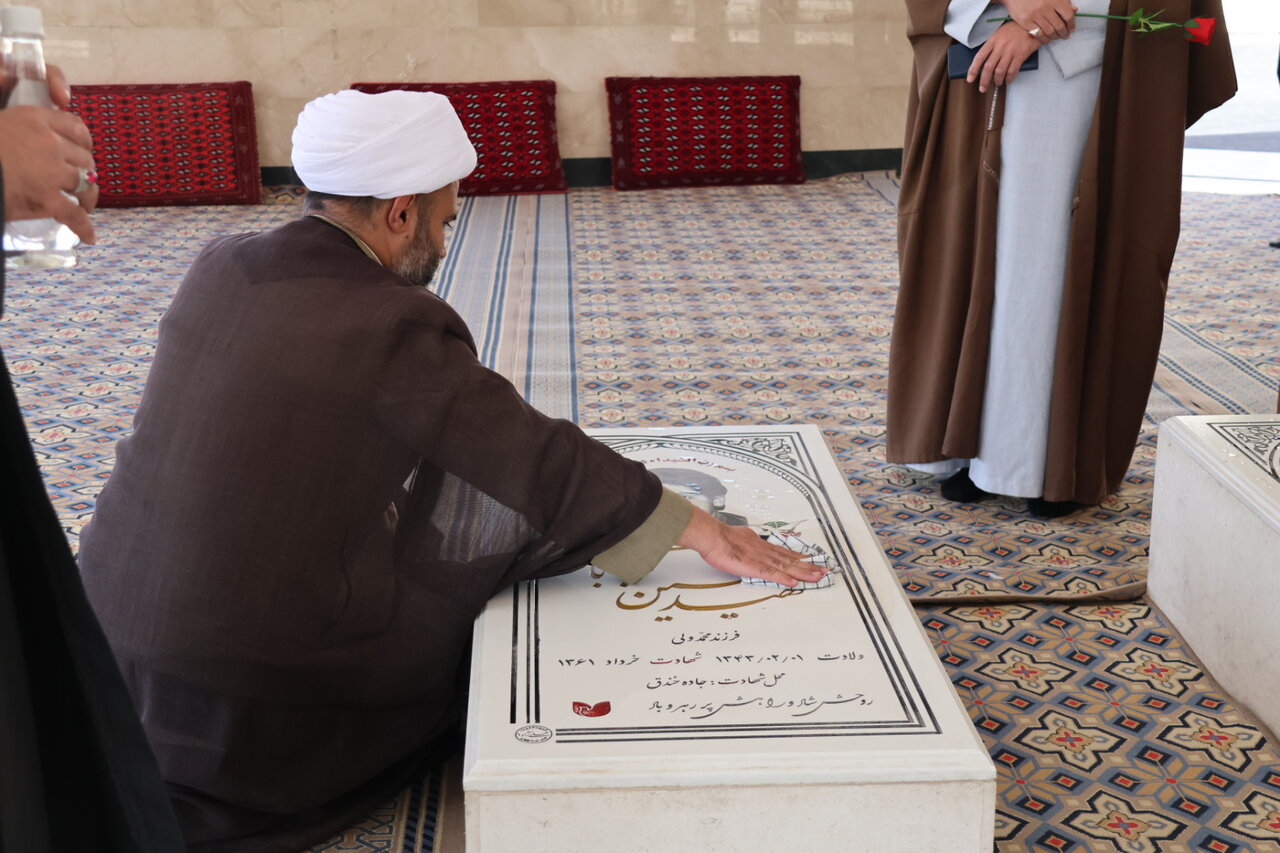 بسم رب الشهداء
شهید حسین
فرزند محمدولی
ولادت ۱۳۴۳/۰۲/۰۱ شهادت خرداد ۱۳۶۱
محل شهادت : جاده خندق
روحش شاد و راهش پر رهرو باد